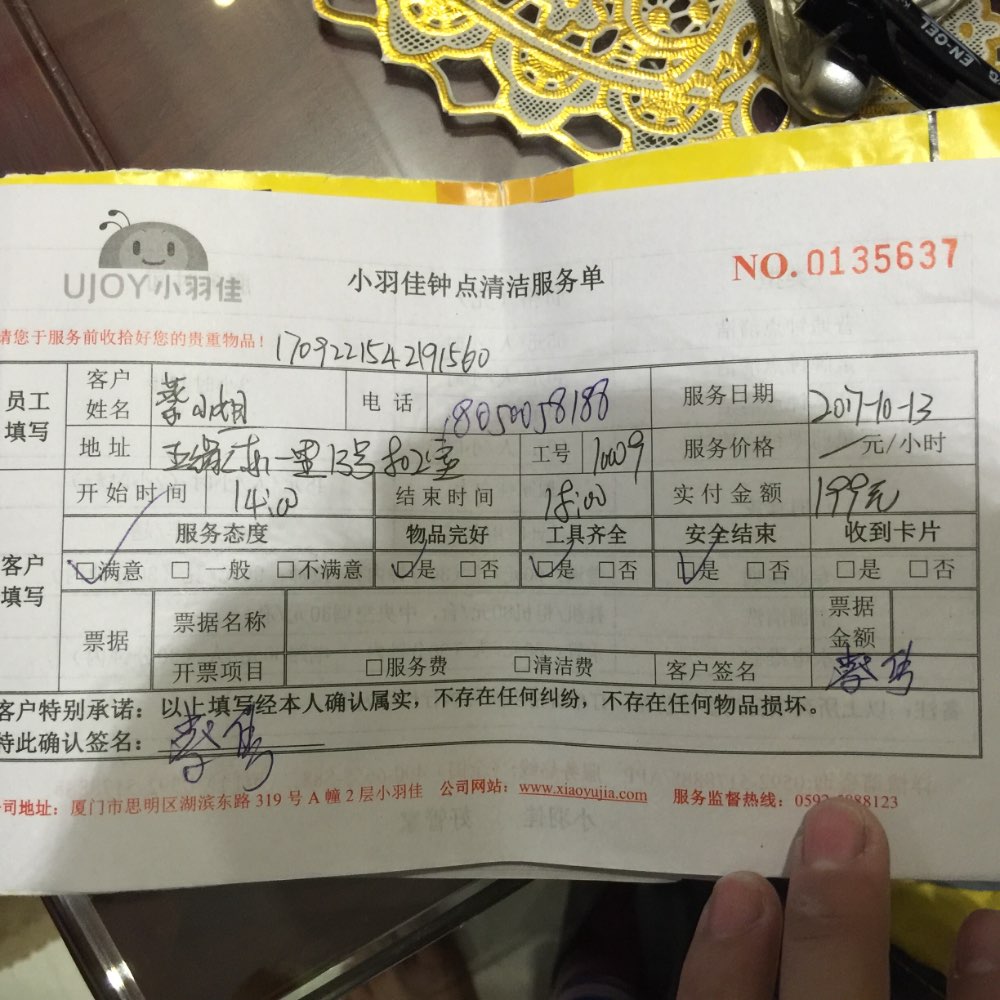 EN-OEL
UJOY小羽佳
小羽佳钟点清洁服务单
NO.0135637
请您于服务前收拾好您的贵重物品！
1709221542191560
员工填写
客户姓名 小姐 电话 18050058188 服务日期 2017-10-13
地址 东一里13号 室 工号 10009 服务价格 元/小时
开始时间 14:00 结束时间 18:00 实付金额 199元
客户填写
服务态度 物品完好 工具齐全 安全结束 收到卡片
☑满意 □ 一般 □不满意 ☑是 □否 ☑是 □否 ☑是 □否 □是 □否
票据 票据名称 票据金额
开票项目 □服务费 □清洁费 客户签名
客户特别承诺：以上填写经本人确认属实，不存在任何纠纷，不存在任何物品损坏。
特此确认签名：
公司地址：厦门市思明区湖滨东路 319 号 A 幢 2 层小羽佳 公司网站：www.xiaoyujia.com 服务监督热线：0592 888123